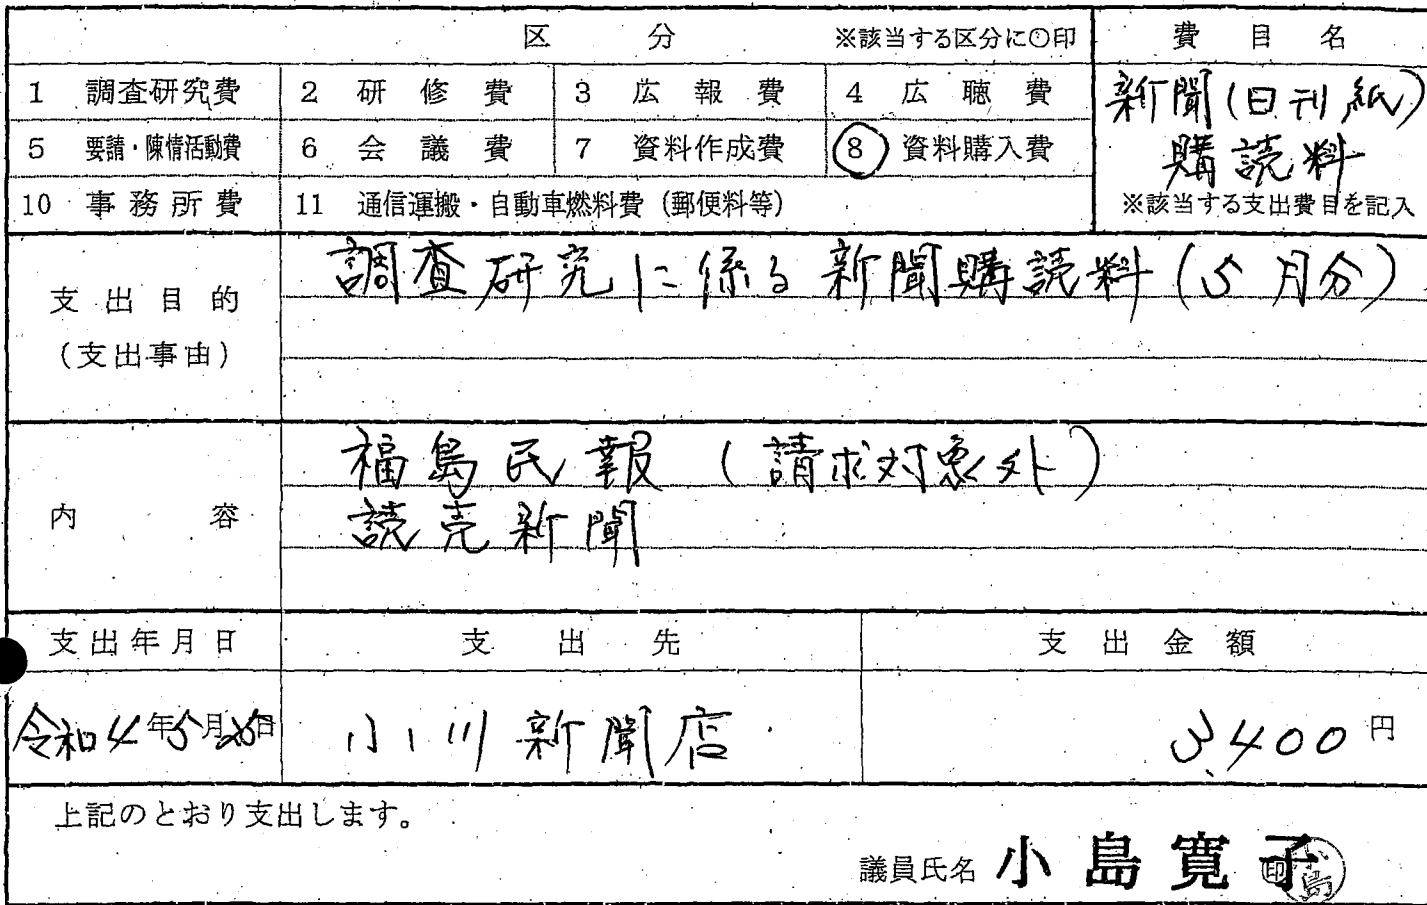 区 分 ※該当する区分に○印 費 目 名
1 調査研究費 2 研 修 費 3 広 報 費 4 広 聴 費
新聞(日刊紙)
5 要請・陳情活動費 6 会 議 費 7 資料作成費 8 資料購入費
購読料
10 事務所費 11 通信運搬・自動車燃料費(郵便料等)
※該当する支出費目を記入
支出目的
(支出事由)
調査研究に係る新聞購読料(5月分)
内 容
福島民報(請求対象外)
読売新聞
支出年月日 支 出 先 支 出 金 額
令和4年5月 日 小川新聞店 3,400円
上記のとおり支出します。
議員氏名 小島寛子 印
小島